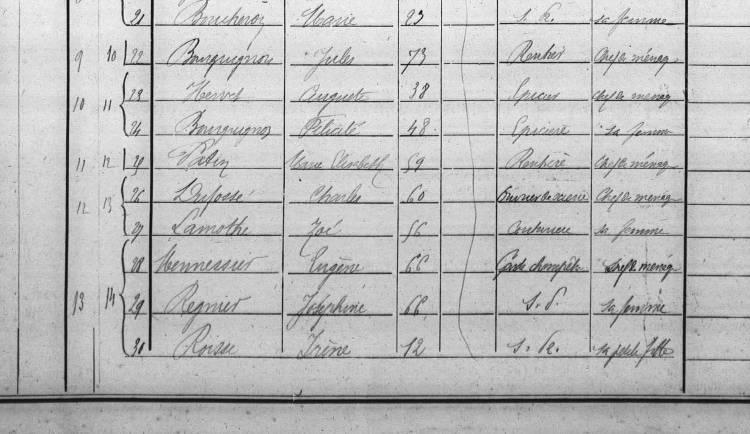 21 Boucheron Marie 23 s. p. sa femme
9 10 22 Bourguignon Jules 73 Rentier Chef de ménag
10 11 23 Hervet Auguste 38 Epicier chef de ménag
24 Bourguignon Félicité 48 Epicière sa femme
11 12 25 Patin Marie Elisabeth 59 Rentière Chef de ménag
12 13 26 Dufossé Charles 60 Ouvrier de scierie Chef de ménag
27 Lamothe Zoé 56 Couturière sa femme
28 Mennessier Eugène 66 Garde champêtre Chef de ménag
13 14 29 Regnier Joséphine 66 s. p. sa femme
30 Irène 12 s. p. sa petite fille